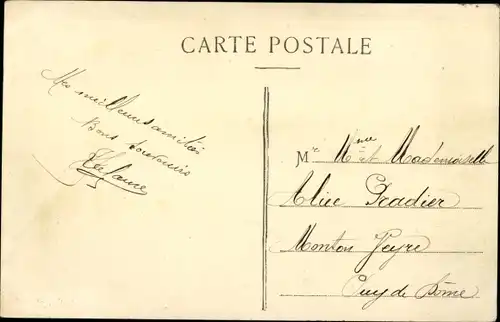 CARTE POSTALE
Mes meilleures amitiés
Bons souvenirs
Mr Mme et Mademoiselle
Alice Pradier
Monton Veyre
Puy de Dôme